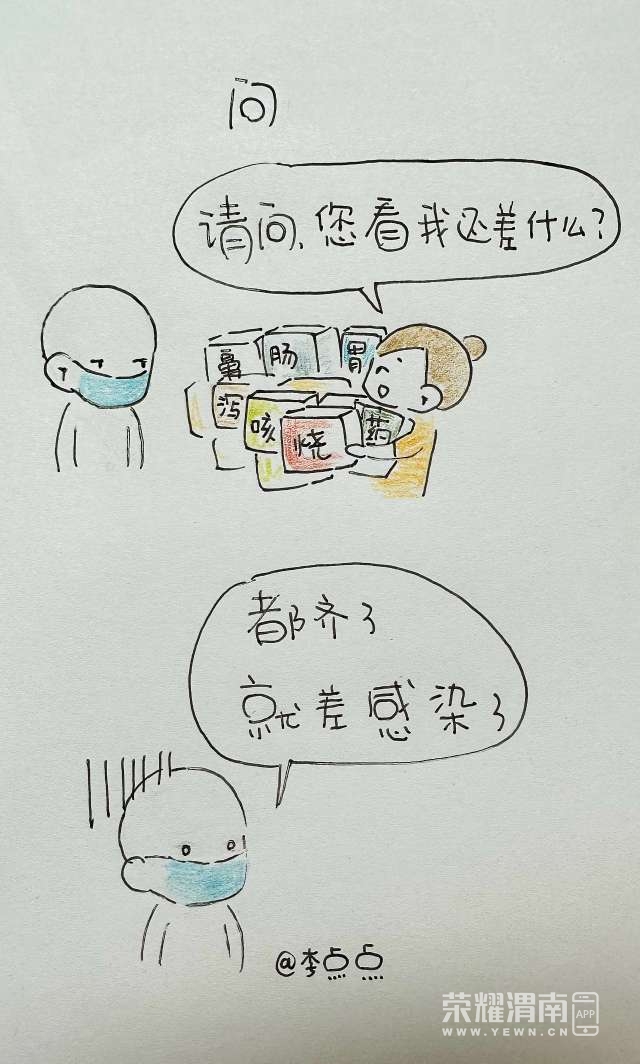 问
请问、您看我还差什么?
鼻
肠
胃
泻
咳
烧
药
都齐了
就差感染了
@李点点
荣耀渭南 APP
WWW.YEWN.CN